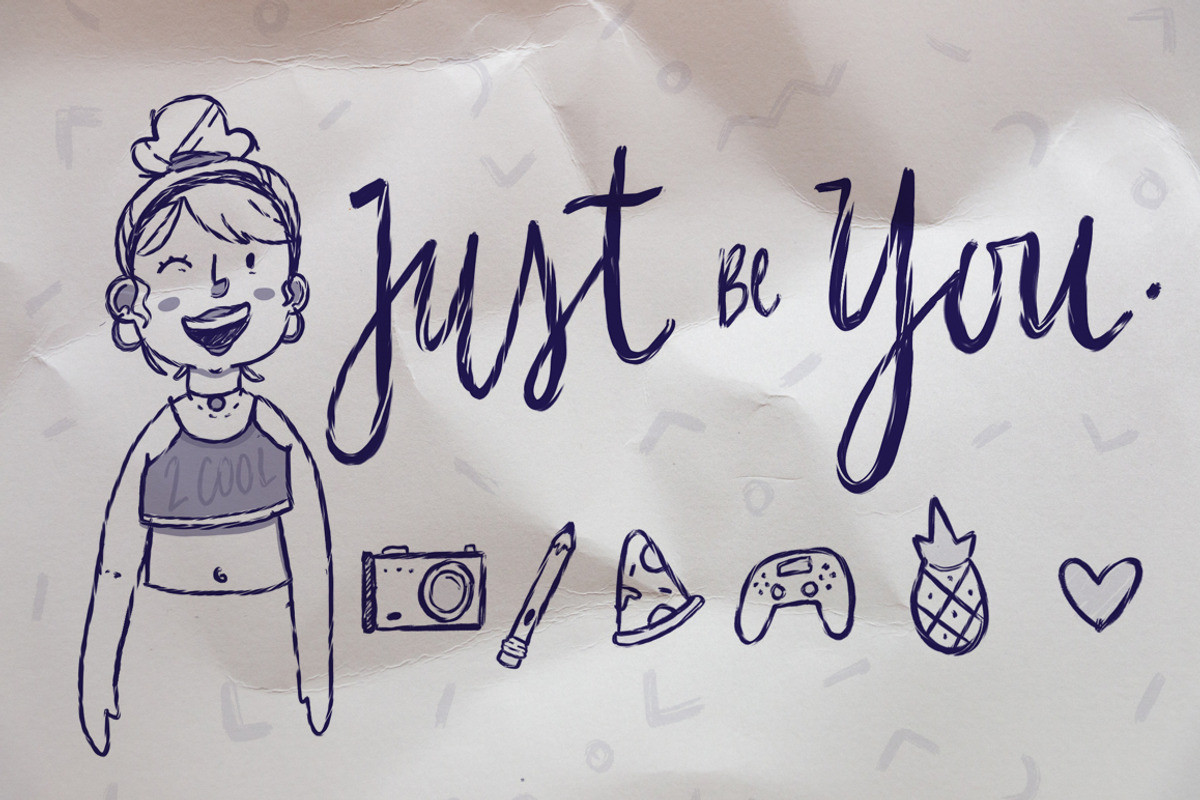 Just Be You.
2 COOL